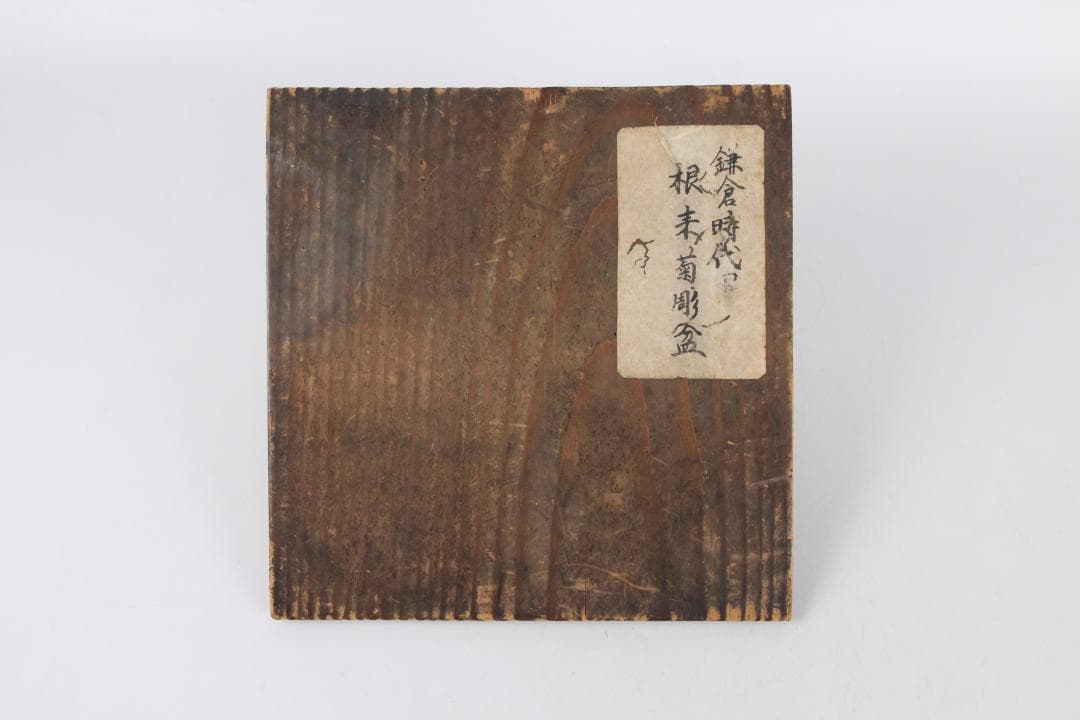 鎌倉時代
根来菊彫盆